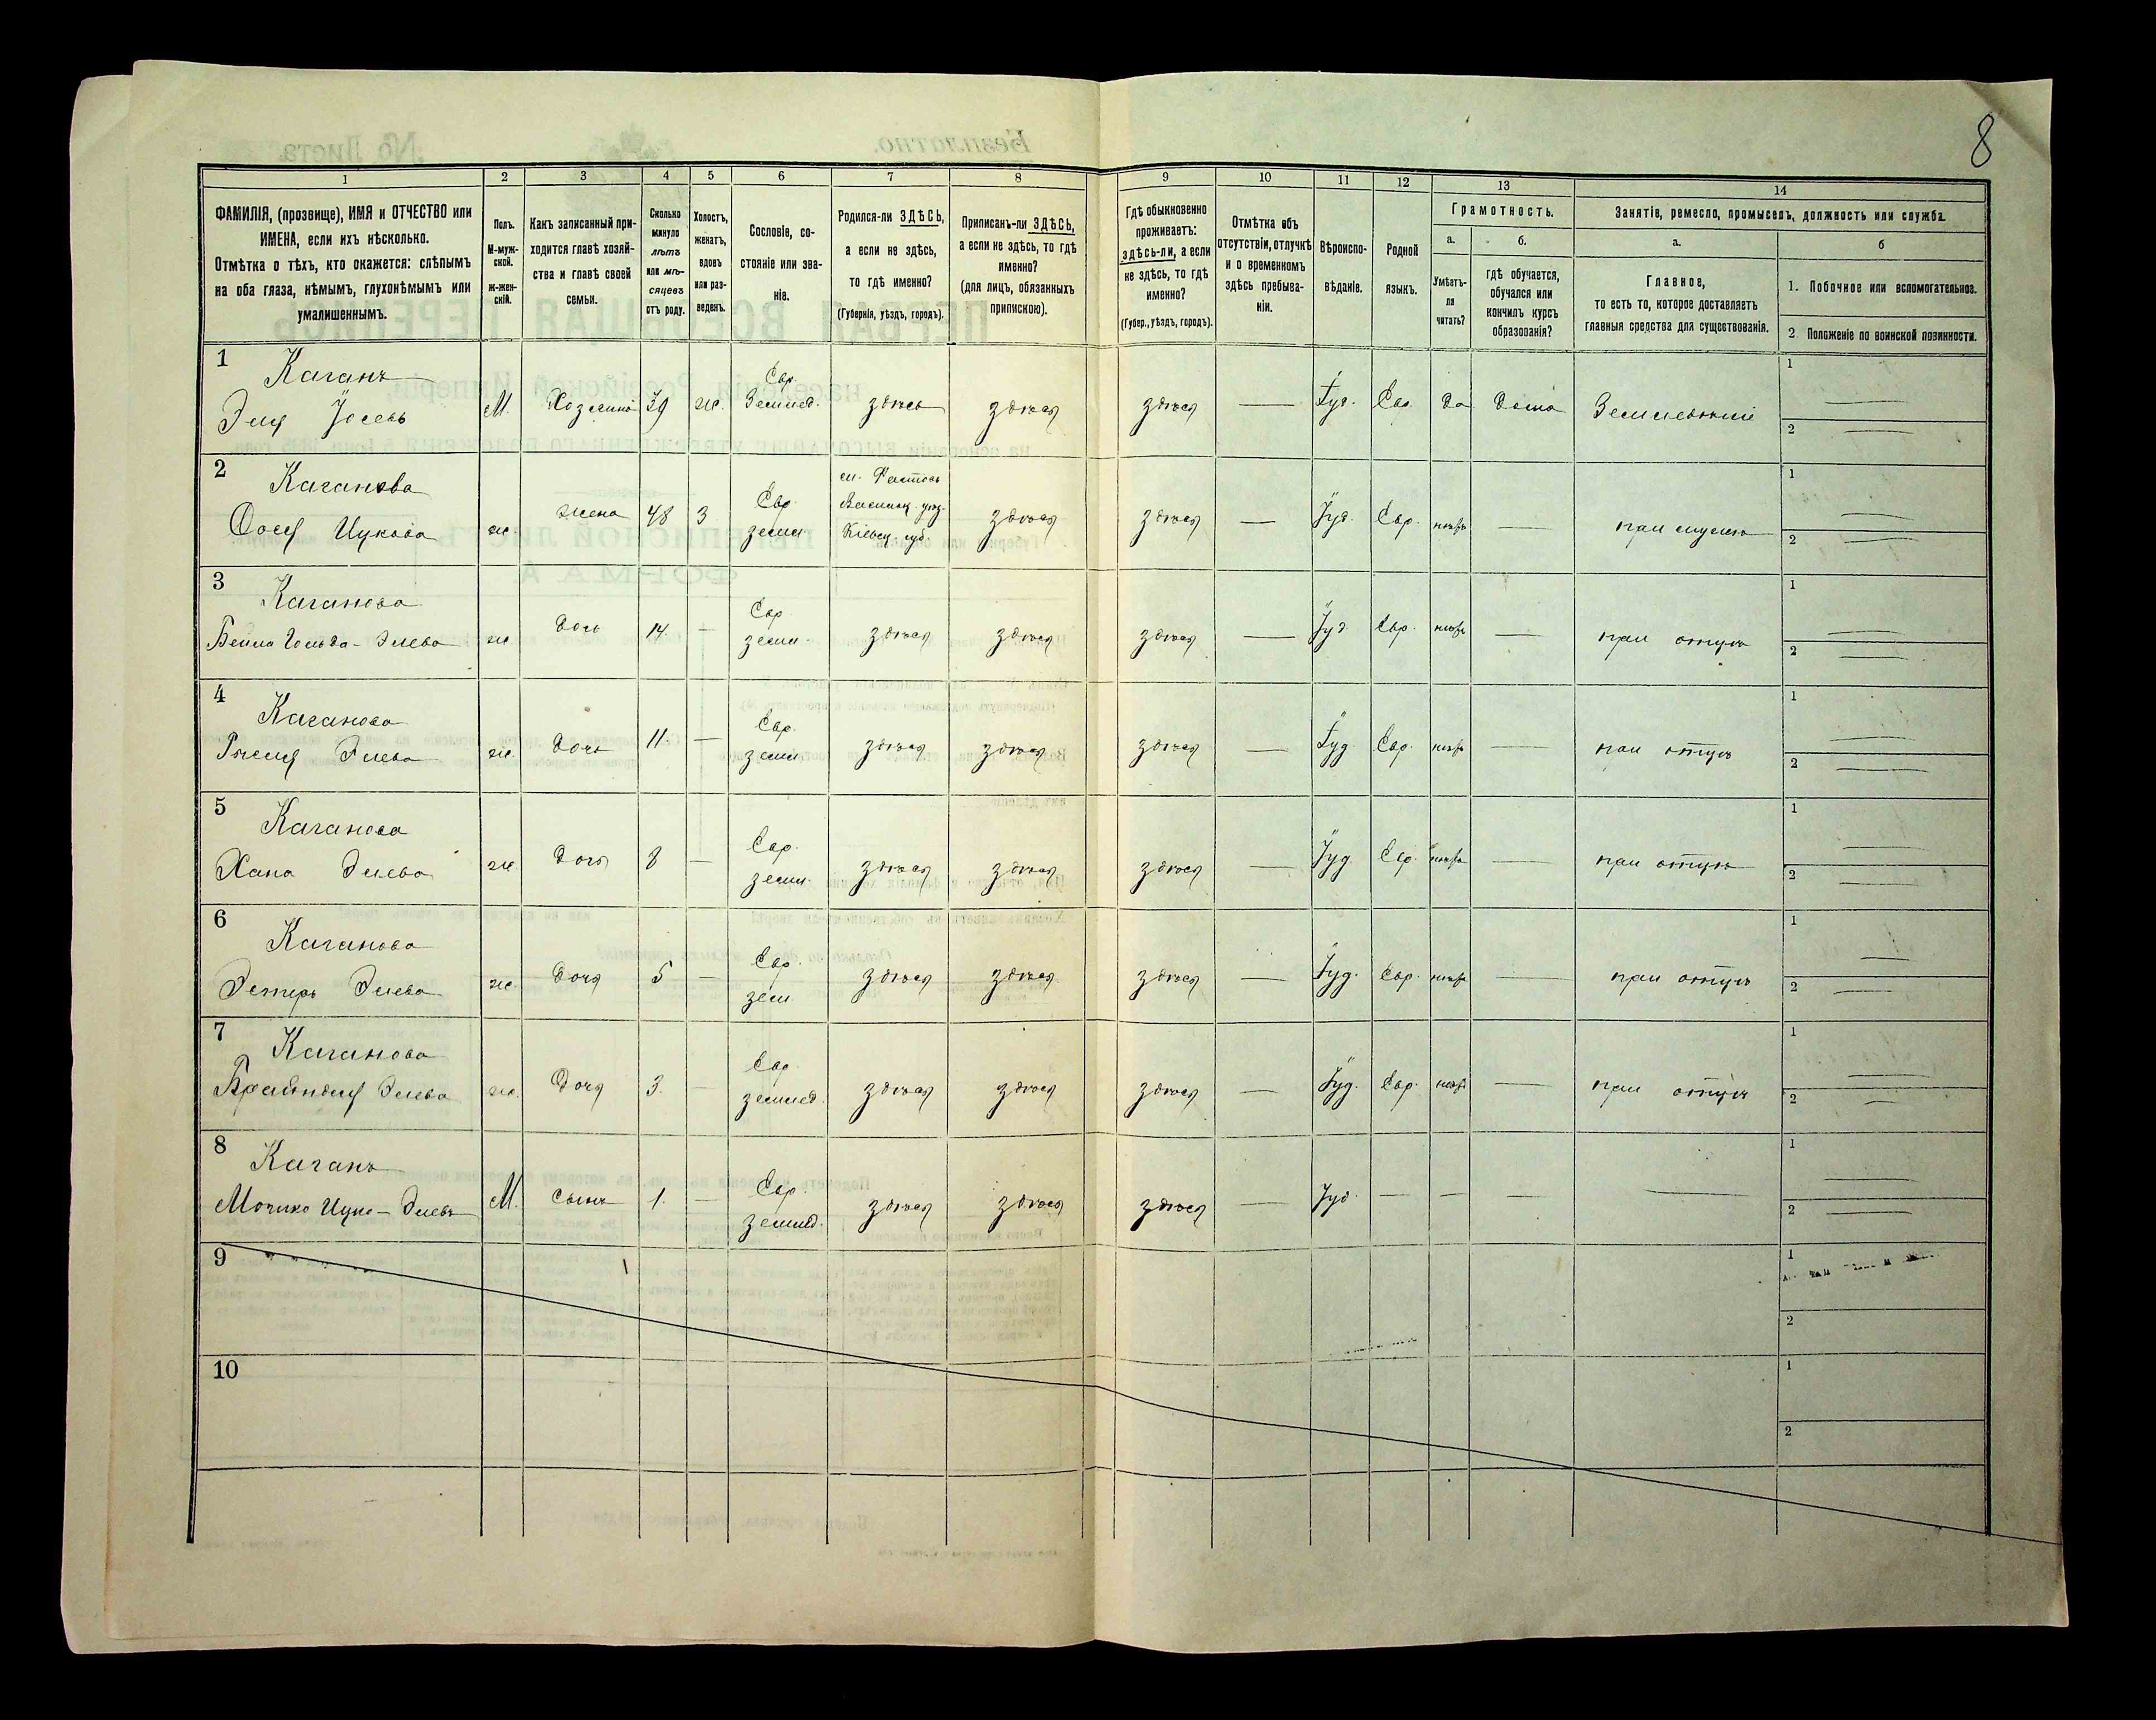 8
1 2 3 4 5 6 7 8 9 10 11 12 13 14
ФАМИЛІЯ, (прозвище), ИМЯ и ОТЧЕСТВО или
ИМЕНА, если ихъ нѣсколько.
Отмѣтка о тѣхъ, кто окажется: слѣпымъ
на оба глаза, нѣмымъ, глухонѣмымъ или
умалишеннымъ.
Полъ.
М-муж-
ской.
ж-жен-
скій.
Какъ записанный при-
ходится главѣ хозяй-
ства и главѣ своей
семьи.
Сколько
минуло
лѣтъ
или мѣ-
сяцевъ
отъ роду.
Холостъ,
женатъ,
вдовъ
или раз-
веденъ.
Сословіе, со-
стояніе или зва-
ніе.
Родился-ли ЗДѢСЬ,
а если не здѣсь,
то гдѣ именно?
(Губернія, уѣздъ, городъ).
Приписанъ-ли ЗДѢСЬ,
а если не здѣсь, то гдѣ
именно?
(для лицъ, обязанныхъ
припискою).
Гдѣ обыкновенно
проживаетъ:
здѣсь-ли, а если
не здѣсь, то гдѣ
именно?
(Губер., уѣздъ, городъ).
Отмѣтка объ
отсутствіи, отлучкѣ
и о временномъ
здѣсь пребыва-
ніи.
Вѣроиспо-
вѣданіе.
Родной
языкъ.
Грамотность.
а.
Умѣетъ-
ли
читать?
б.
гдѣ обучается,
обучался или
кончилъ курсъ
образованія?
Занятіе, ремесло, промыселъ, должность или служба.
а.
Главное,
то есть то, которое доставляетъ
главныя средства для существованія.
б
1. Побочное или вспомогательное.
2. Положеніе по воинской повинности.
1 Каганъ
Эля Іосевъ М. Хозяинъ 39 ж. Евр. Земл. здѣсь здѣся здѣся — Іуд. Евр. да дома 1 —
2 —
2 Каганова
Цукова ж. жена 48 З Евр. земл. м. Фастовъ
Васильк. уѣз.
Кіевск. губ. здѣся здѣся — Іуд. Евр. нѣтъ — при мужѣ 1 —
2 —
3 Каганова
Бейла Гольда - Элева ж. дочь 14. — Евр. земл. здѣся здѣся здѣся — Іуд. Евр. нѣтъ — при отцѣ 1 —
2 —
4 Каганова
Элева ж. дочь 11. — Евр. земл. здѣся здѣся здѣся — Іуд. Евр. нѣтъ — при отцѣ 1 —
2 —
5 Каганова
Хана Элева ж. дочь 8 — Евр. земл. здѣся здѣся здѣся — Іуд. Евр. нѣтъ — при отцѣ 1 —
2 —
6 Каганова
Эстеръ Элева ж. дочя 5 — Евр. земл здѣся здѣся здѣся — Іуд. Евр. нѣтъ — при отцѣ 1 —
2 —
7 Каганова
Брайндля Элева ж. дочя 3. — Евр. землед. здѣся здѣся здѣся — Іуд. Евр. нѣтъ — при отцѣ 1 —
2 —
8 Каганъ
Элевъ М. сынъ 1. — Евр. землед. здѣся здѣся здѣся — Іуд. — — — — 1 —
2 —
9 1
2
10 1
2